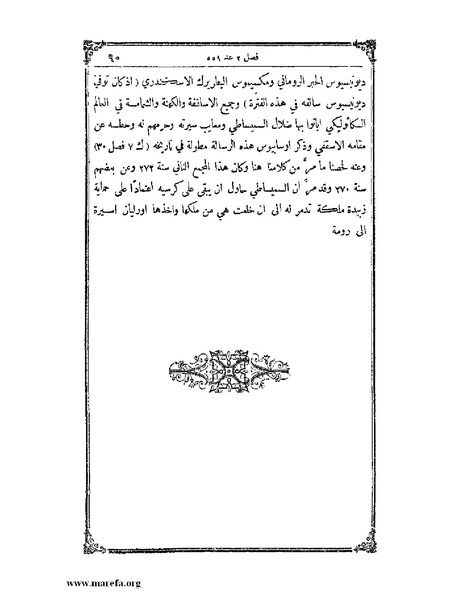 ٩٠ فصل ٢ عد ٥٥٩
ديونيسيوس الحبر الروماني ومكسيموس البطريرك الاسكندري ( اذ كان توفي
ديونيسيوس سالفه في هذه الفترة ) وجميع الاساقفة والكهنة والشمامسة في العالم
الكاثوليكي ابانوا بها ضلال السميساطي ومعايب سيرته وحرمهم له وحطه عن
مقامه الاسقفي وذكر اوسابيوس هذه الرسالة مطولة في تاريخه ( ك ٧ فصل ٣٠)
وعنه لخصنا ما مرَّ من كلامنا هنا وكان هذا المجمع الثاني سنة ٢٧٢ وعن بعضهم
سنة ٢٧٠ وقد مرَّ ان السميساطي حاول ان يبقى على كرسيه اعتمادًا على حماية
زبيدة ملكة تدمر له الى ان خلعت هي من ملكها واخذها اورليان اسيرة
الى رومة
www.marefa.org